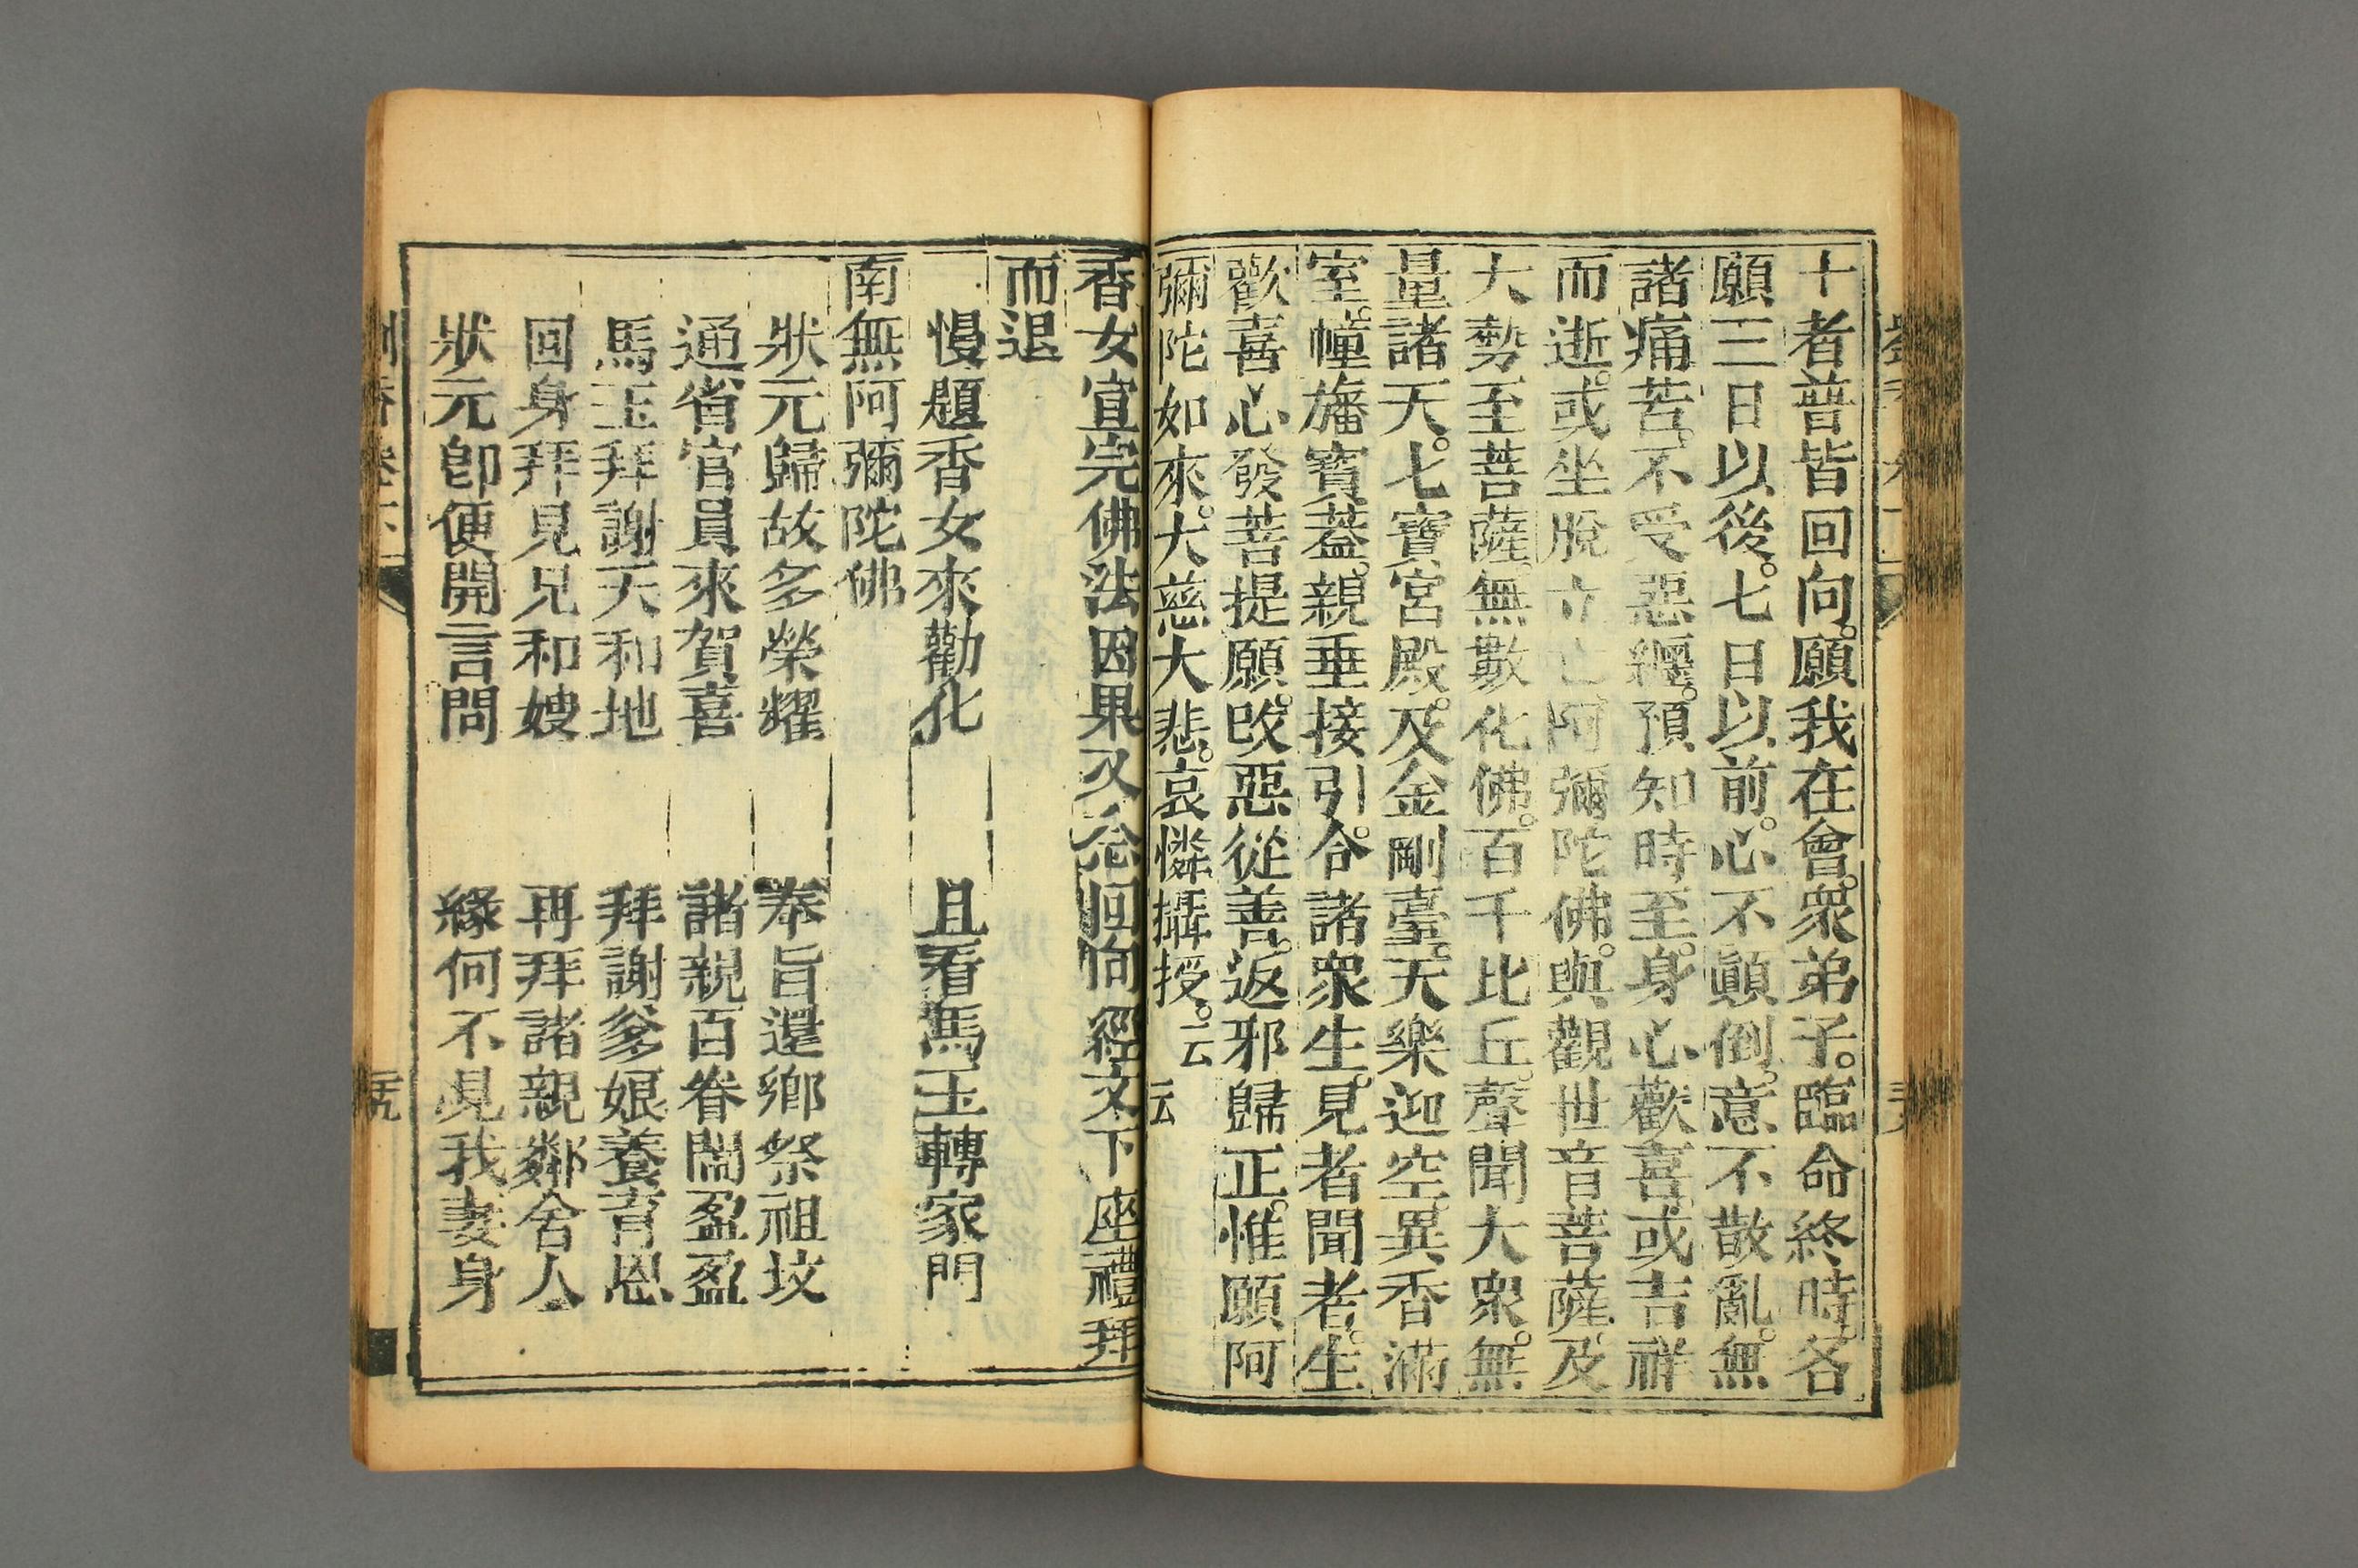 十者普皆回向。願我在會。衆弟子。臨命終時。各
願三日以後。七日以前。心不顚倒。意不散亂。無
諸痛苦。不受惡纒。預知時至。身心歡喜。或吉祥
而逝。或坐脫立亡。阿彌陀佛。與觀世音菩薩。及
大勢至菩薩。無數化佛。百千比丘。聲聞大衆。無
量諸天。七寶宮殿。及金剛臺。天樂迎空。異香滿
室。幢旛寳葢。親垂接引。令諸衆生。見者聞者。生
歡喜心。發菩提願。改惡從善。返邪歸正。惟願阿
彌陀如來。大慈大悲。哀憐攝授。云云
香女宣完佛法因果又念回向經文下座禮拜
而退
慢題香女來勸化　且看馬玉轉家門
南無阿彌陀佛
狀元歸故多榮耀　奉旨還鄉祭祖坟
通省官員來賀喜　諸親百眷鬧盈盈
馬玉拜謝天和地　拜謝爹娘養育恩
回身拜見兄和嫂　再拜諸親鄰舍人
狀元卽便開言問　緣何不見我妻身
香卷下